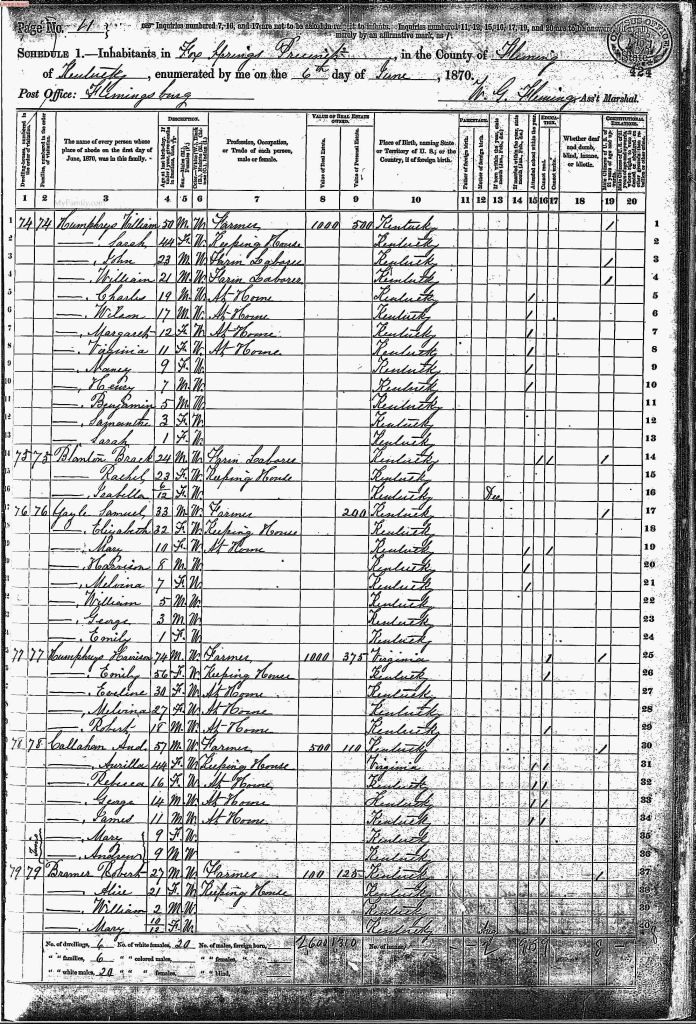 Page No. 11
Inquiries numbered 7, 16, and 17 are not to be asked in respect to infants. Inquiries numbered 11, 12, 15, 16, 17, 19, and 20 are to be answered
merely by an affirmative mark, as /.
SCHEDULE 1.—Inhabitants in Fox Springs Precinct, in the County of Fleming
of Kentucky, enumerated by me on the 6th day of June, 1870.
424
Post Office: Flemingsburg W. G. Fleming, Ass't Marshal.
The name of every person whose place of abode on the first day of June, 1870, was in this family.
DESCRIPTION.
Profession, Occupation, or Trade of each person, male or female.
VALUE OF REAL ESTATE OWNED.
Value of Real Estate.
Value of Personal Estate.
Place of Birth, naming State or Territory of U. S.; or the Country, if of foreign birth.
PARENTAGE.
Father of foreign birth.
Mother of foreign birth.
Whether deaf and dumb, blind, insane, or idiotic.
1 2 3 4 5 6 7 8 9 10 11 12 13 14 15 16 17 18 19 20
1 74 74 Humphrys William 50 M W Farmer 1000 500 Kentucky / 1
2 —, Sarah 44 F W Keeping House Kentucky 2
3 —, John 23 M W Farm Laborer Kentucky / 3
4 —, William 21 M W Farm Laborer Kentucky / 4
5 —, Charles 19 M W At Home Kentucky / 5
6 —, Wilson 17 M W At Home Kentucky / 6
7 —, Margaret 12 F W At Home Kentucky / 7
8 —, Virginia 11 F W At Home Kentucky / 8
9 —, Nancy 9 F W Kentucky / 9
10 —, Henry 7 M W Kentucky / 10
11 —, Benjamin 5 M W Kentucky 11
12 —, Samantha 3 F W Kentucky 12
13 —, Sarah 1 F W Kentucky 13
14 75 75 Blanton Brack 24 M W Farm Laborer Kentucky / / / 14
15 —, Rachel 23 F W Keeping House Kentucky 15
16 —, Isabella 6/12 F W Kentucky Dec 16
17 76 76 Gayle Samuel 33 M W Farmer 200 Kentucky / 17
18 —, Elizabeth 32 F W Keeping House Kentucky 18
19 —, Mary 10 F W At Home Kentucky / / 19
20 —, Harrison 8 M W Kentucky / 20
21 —, Melvina 7 F W Kentucky / 21
22 —, William 5 M W Kentucky 22
23 —, George 3 M W Kentucky 23
24 —, Emily 1 F W Kentucky 24
25 77 77 Humphrys Harison 74 M W Farmer 1000 375 Virginia / / 25
26 —, Emily 56 F W Keeping House Kentucky / 26
27 —, Eveline 30 F W At Home Kentucky 27
28 —, Melvina 27 F W At Home Kentucky 28
29 —, Robert 18 M W At Home Kentucky / 29
30 78 78 Callahan And. 57 M W Farmer 500 110 Kentucky / 30
31 —, Aurilla 44 F W Keeping House Virginia / / 31
32 —, Rebecca 16 F W At Home Kentucky / / 32
33 —, George 14 M W At Home Kentucky / / 33
34 —, James 11 M W At Home Kentucky / / 34
35 —, Mary 9 F W Kentucky 35
36 —, Andrew 9 M W Kentucky 36
37 79 79 Bramer Robert 27 M W Farmer 100 125 Kentucky / 37
38 —, Alice 21 F W Keeping House Kentucky 38
39 —, William 2 M W Kentucky 39
40 —, Mary 10/12 F W Kentucky 40
No. of dwellings, 6 No. of white females, 20 No. of males, foreign born, 2600 1310
" " families, 6 " " colored males, " " females,
" " white males, 20 " " females, " " blind,
MyFamily.com